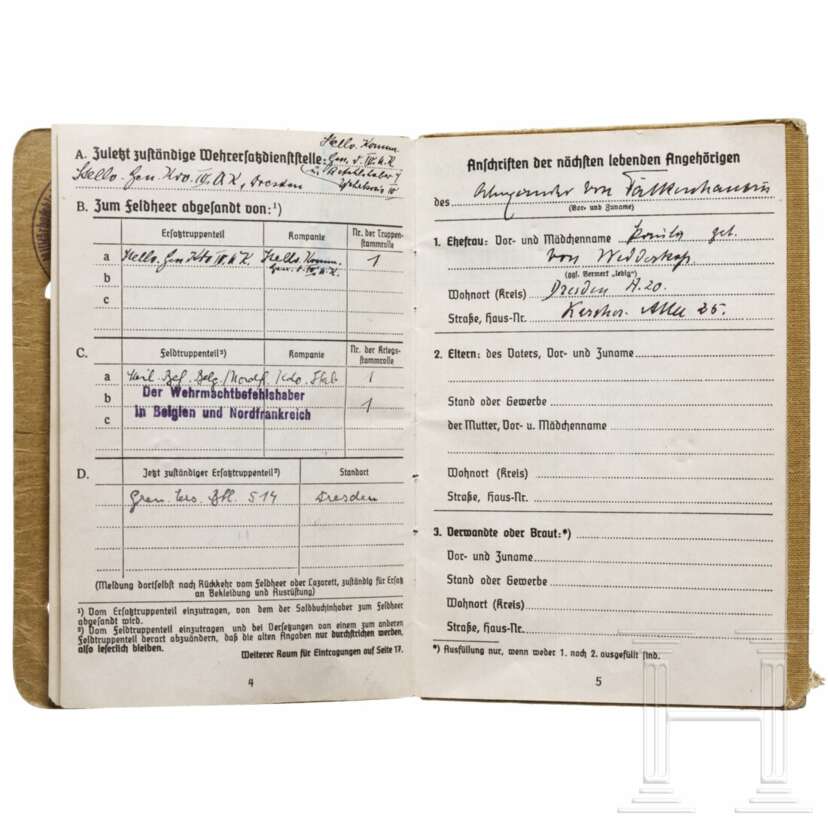 A. Zuletzt zuständige Wehrersatzdienststelle:
Stello. Komm.
Gen. d. IV. A.K.
u. Befehlshaber i.
Wehrkreis IV
Stello. Gen. Kdo. IV. A.K., Dresden
B. Zum Feldheer abgesandt von:¹)
Ersatztruppenteil
Kompanie
Nr. der Truppen-
stammrolle
a Stello. Gen. Kdo IV. A.K. Stello. Komm. 1
Gen. d. IV. A.K.
b
c
C. Feldtruppenteil²)
Kompanie
Nr. der Kriegs-
stammrolle
a Mil. Bef. Belg./Nordf. Kdo. Stab 1
b Der Wehrmachtbefehlshaber
in Belgien und Nordfrankreich 1
c
D. Jetzt zuständiger Ersatztruppenteil²)
Standort
Gren. Ers. Btl. 514 Dresden
(Meldung dortselbst nach Rückkehr vom Feldheer oder Lazarett, zuständig für Ersatz
an Bekleidung und Ausrüstung)
¹) Vom Ersatztruppenteil einzutragen, von dem der Soldbuchinhaber zum Feldheer
abgesandt wird.
²) Vom Feldtruppenteil einzutragen und bei Versetzungen von einem zum anderen
Feldtruppenteil derart abzuändern, daß die alten Angaben nur durchstrichen werden,
also leserlich bleiben.
Weiterer Raum für Eintragungen auf Seite 17.
4
Anschriften der nächsten lebenden Angehörigen
des Alexander von Falkenhausen
(Vor- und Zuname)
1. Ehefrau: Vor- und Mädchenname geb.
von Wedderkop
(ggf. Vermerk „ledig")
Wohnort (Kreis) Dresden A. 20.
Straße, Haus-Nr. Allee 25.
2. Eltern: des Vaters, Vor- und Zuname
Stand oder Gewerbe
der Mutter, Vor- u. Mädchenname
Wohnort (Kreis)
Straße, Haus-Nr.
3. Verwandte oder Braut:*)
Vor- und Zuname
Stand oder Gewerbe
Wohnort (Kreis)
Straße, Haus-Nr.
*) Ausfüllung nur, wenn weder 1. noch 2. ausgefüllt sind.
5